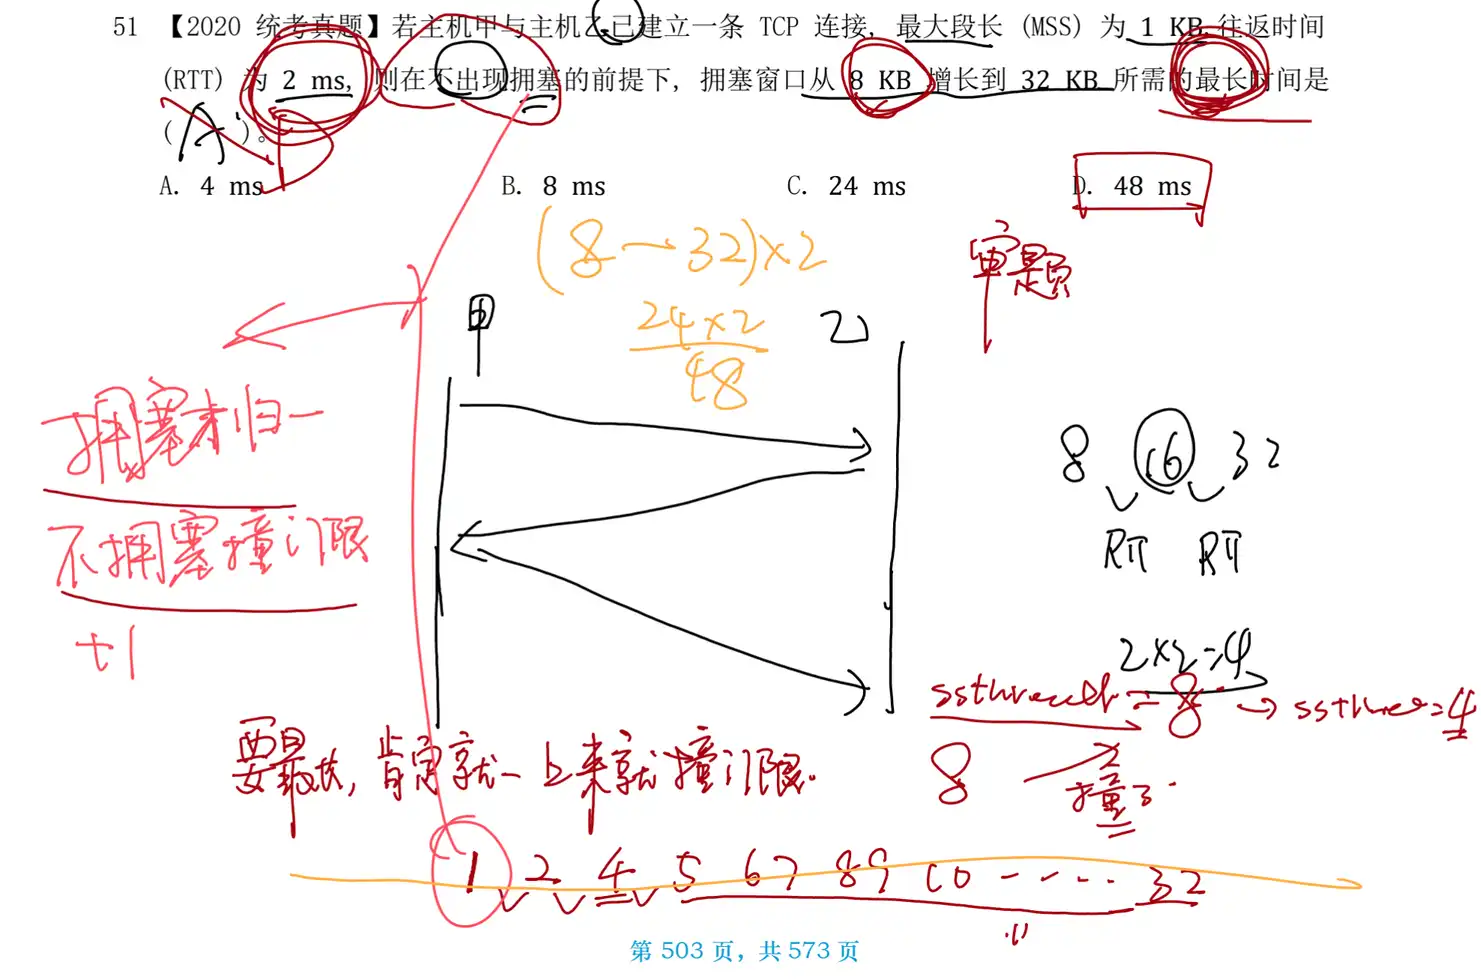 51 【2020 统考真题】若主机甲与主机乙已建立一条 TCP 连接, 最大段长 (MSS) 为 1 KB, 往返时间
(RTT) 为 2 ms, 则在不出现拥塞的前提下, 拥塞窗口从 8 KB 增长到 32 KB 所需的最长时间是
( A )。
A. 4 ms B. 8 ms C. 24 ms D. 48 ms
(8→32)×2
24×2
48
审题
甲 乙
8 16 32
RTT RTT
拥塞来归一
不拥塞撞门限
+1
2×2=4
ssthresh = 8 → ssthres=4
要最长, 肯定就一上来就撞门限.
8 撞了
1 2 4 5 6 7 8 9 10 ---- 32
第 503 页, 共 573 页